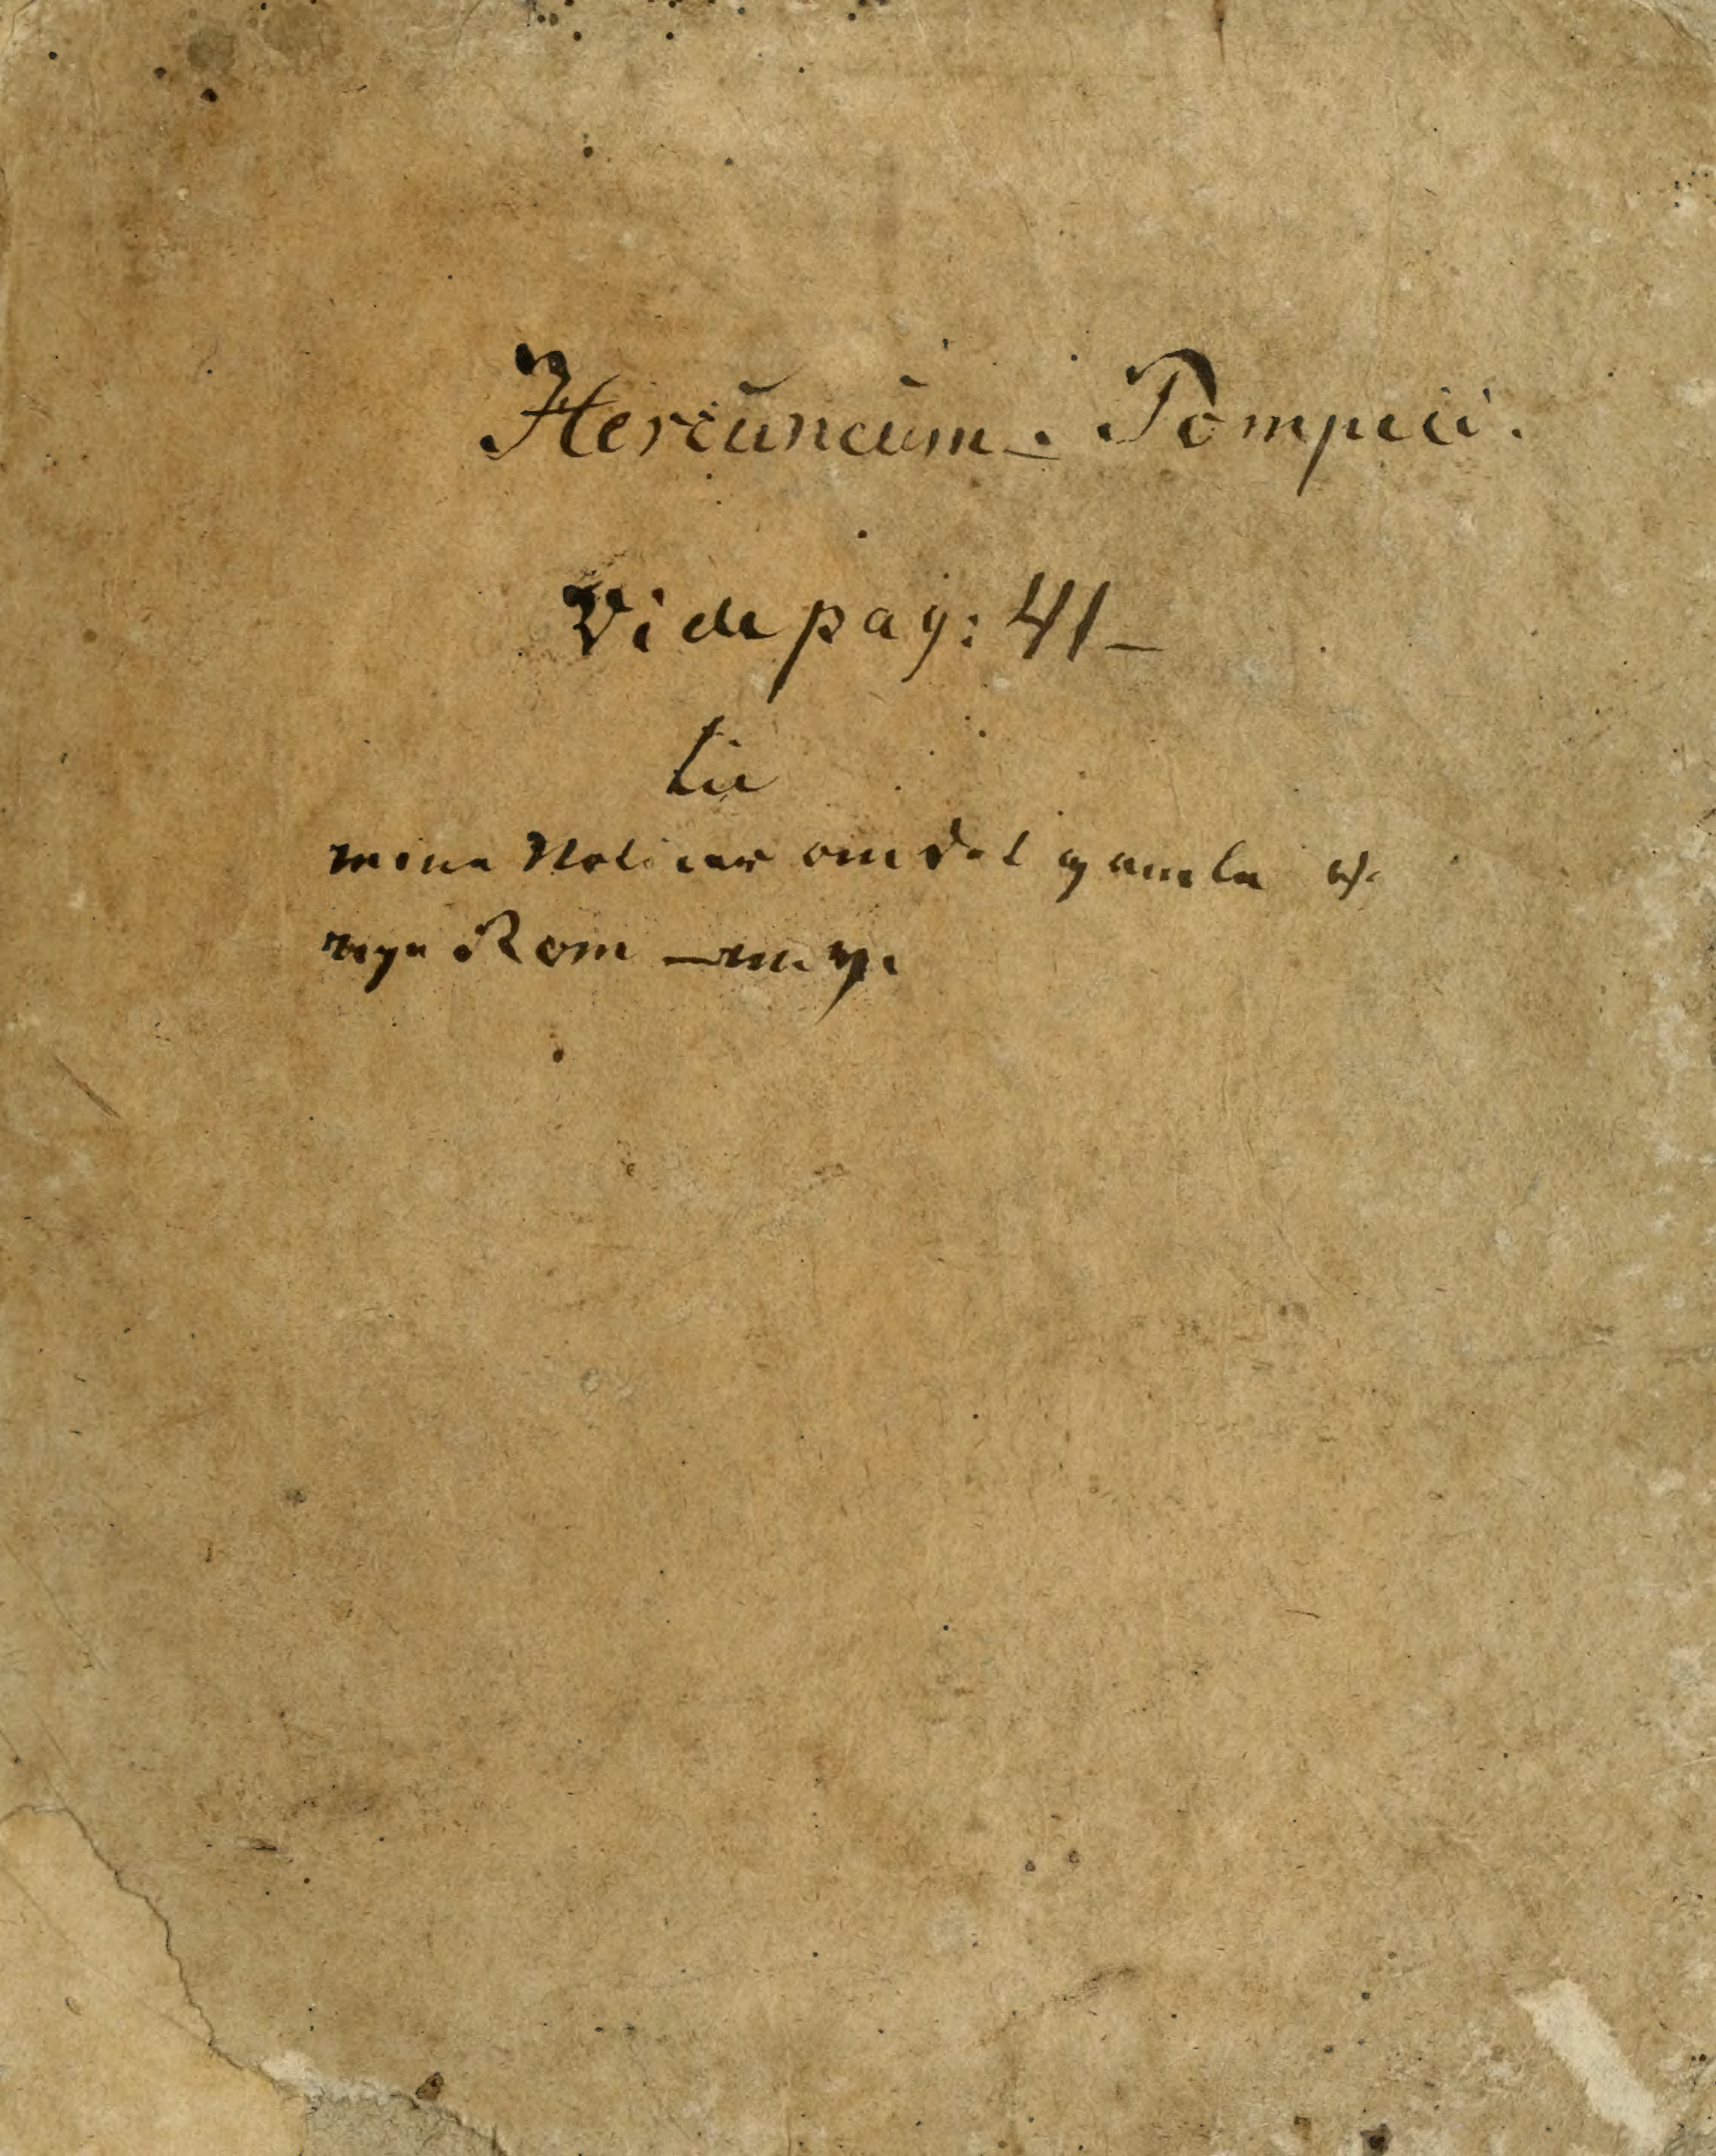 Hercuncum. Pompeii.
Vide pag: 41_
mine Noticer om det gamle og
nye Rom